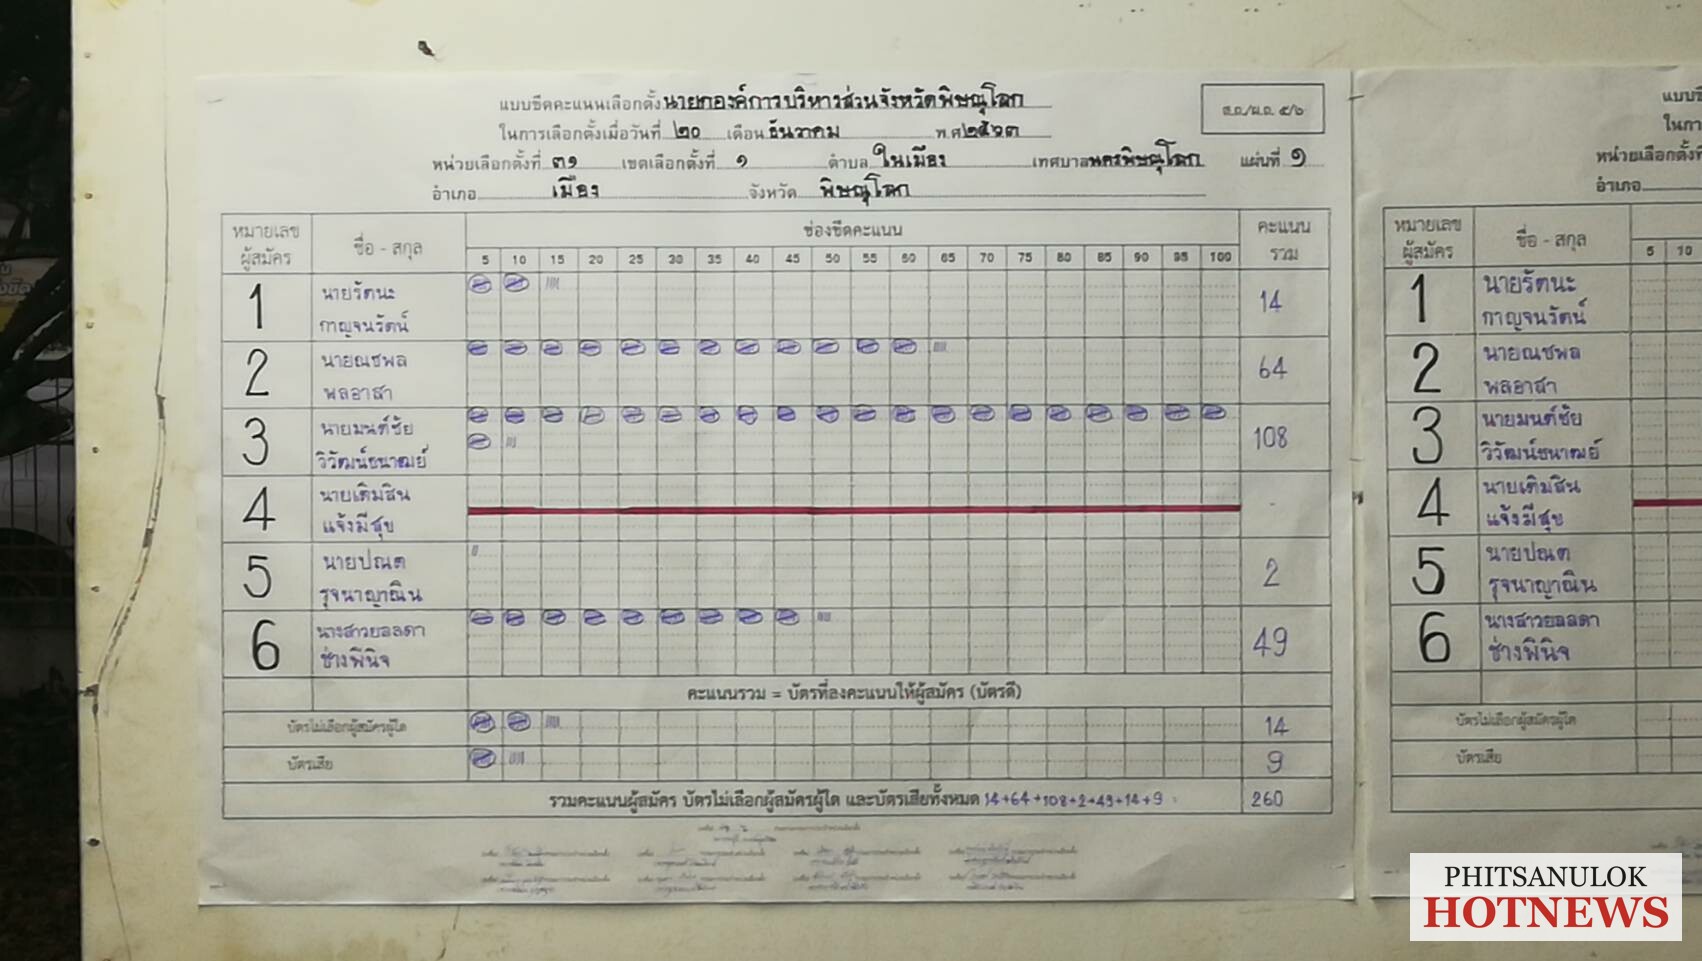 แบบขีดคะแนนเลือกตั้ง นายกองค์การบริหารส่วนจังหวัดพิษณุโลก
ส.ถ./ผ.ถ. ๕/๖
ในการเลือกตั้งเมื่อวันที่ ๒๐ เดือน ธันวาคม พ.ศ. ๒๕๖๓
หน่วยเลือกตั้งที่ ๓๑ เขตเลือกตั้งที่ ๑ ตำบล ในเมือง เทศบาลนครพิษณุโลก แผ่นที่ ๑
อำเภอ เมือง จังหวัด พิษณุโลก
หมายเลข ผู้สมัคร ชื่อ - สกุล ช่องขีดคะแนน คะแนน รวม
5 10 15 20 25 30 35 40 45 50 55 60 65 70 75 80 85 90 95 100
1 นายรัตนะ กาญจนรัตน์ 14
2 นายณชพล พลอาสา 64
3 นายมนต์ชัย วิวัฒน์ธนาฒย์ 108
4 นายเติมสิน แจ้งมีสุข -
5 นายปณต รุจนาญาณิน 2
6 นางสาวยลลดา ช่างพินิจ 49
คะแนนรวม = บัตรที่ลงคะแนนให้ผู้สมัคร (บัตรดี)
บัตรไม่เลือกผู้สมัครผู้ใด 14
บัตรเสีย 9
รวมคะแนนผู้สมัคร บัตรไม่เลือกผู้สมัครผู้ใด และบัตรเสียทั้งหมด 14+64+108+2+49+14+9 260
หน่วยเลือกตั้งที่
อำเภอ
หมายเลข ผู้สมัคร ชื่อ - สกุล
5 10
1 นายรัตนะ กาญจนรัตน์
2 นายณชพล พลอาสา
3 นายมนต์ชัย วิวัฒน์ธนาฒย์
4 นายเติมสิน แจ้งมีสุข
5 นายปณต รุจนาญาณิน
6 นางสาวยลลดา ช่างพินิจ
บัตรไม่เลือกผู้สมัครผู้ใด
บัตรเสีย
PHITSANULOK
HOTNEWS